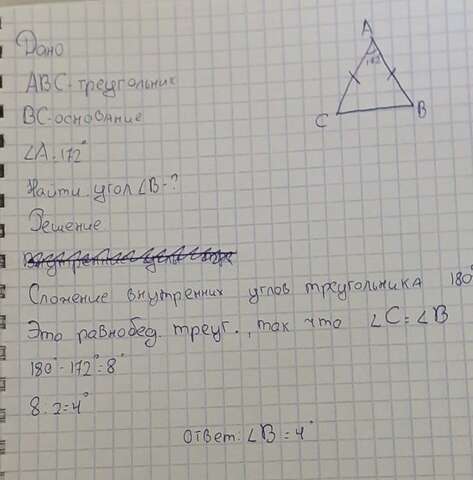 Дано
A
ABC-треугольник
172°
BC-основание
C
B
∠A=172°
Найти угол ∠B-?
Решение
Сложение внутренних углов треугольника 180°
Это равнобед. треуг., так что ∠C=∠B
180°-172°=8°
8:2=4°
Ответ: ∠B=4°